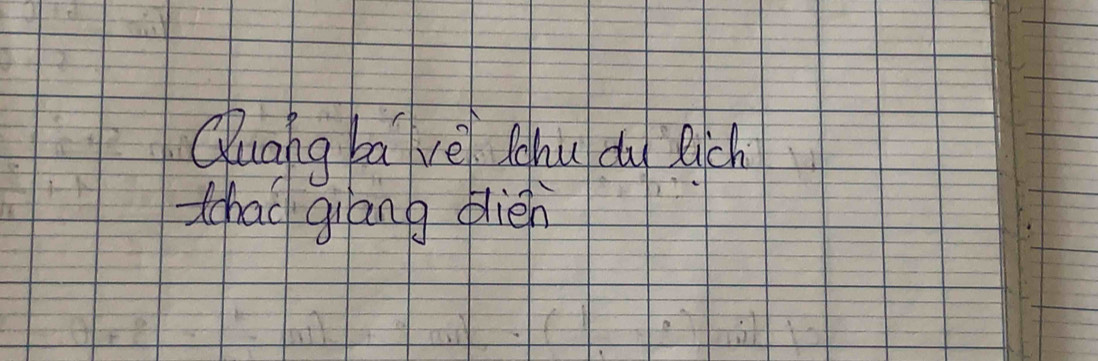 Quảng bá về khu du lịch
thác giang điền